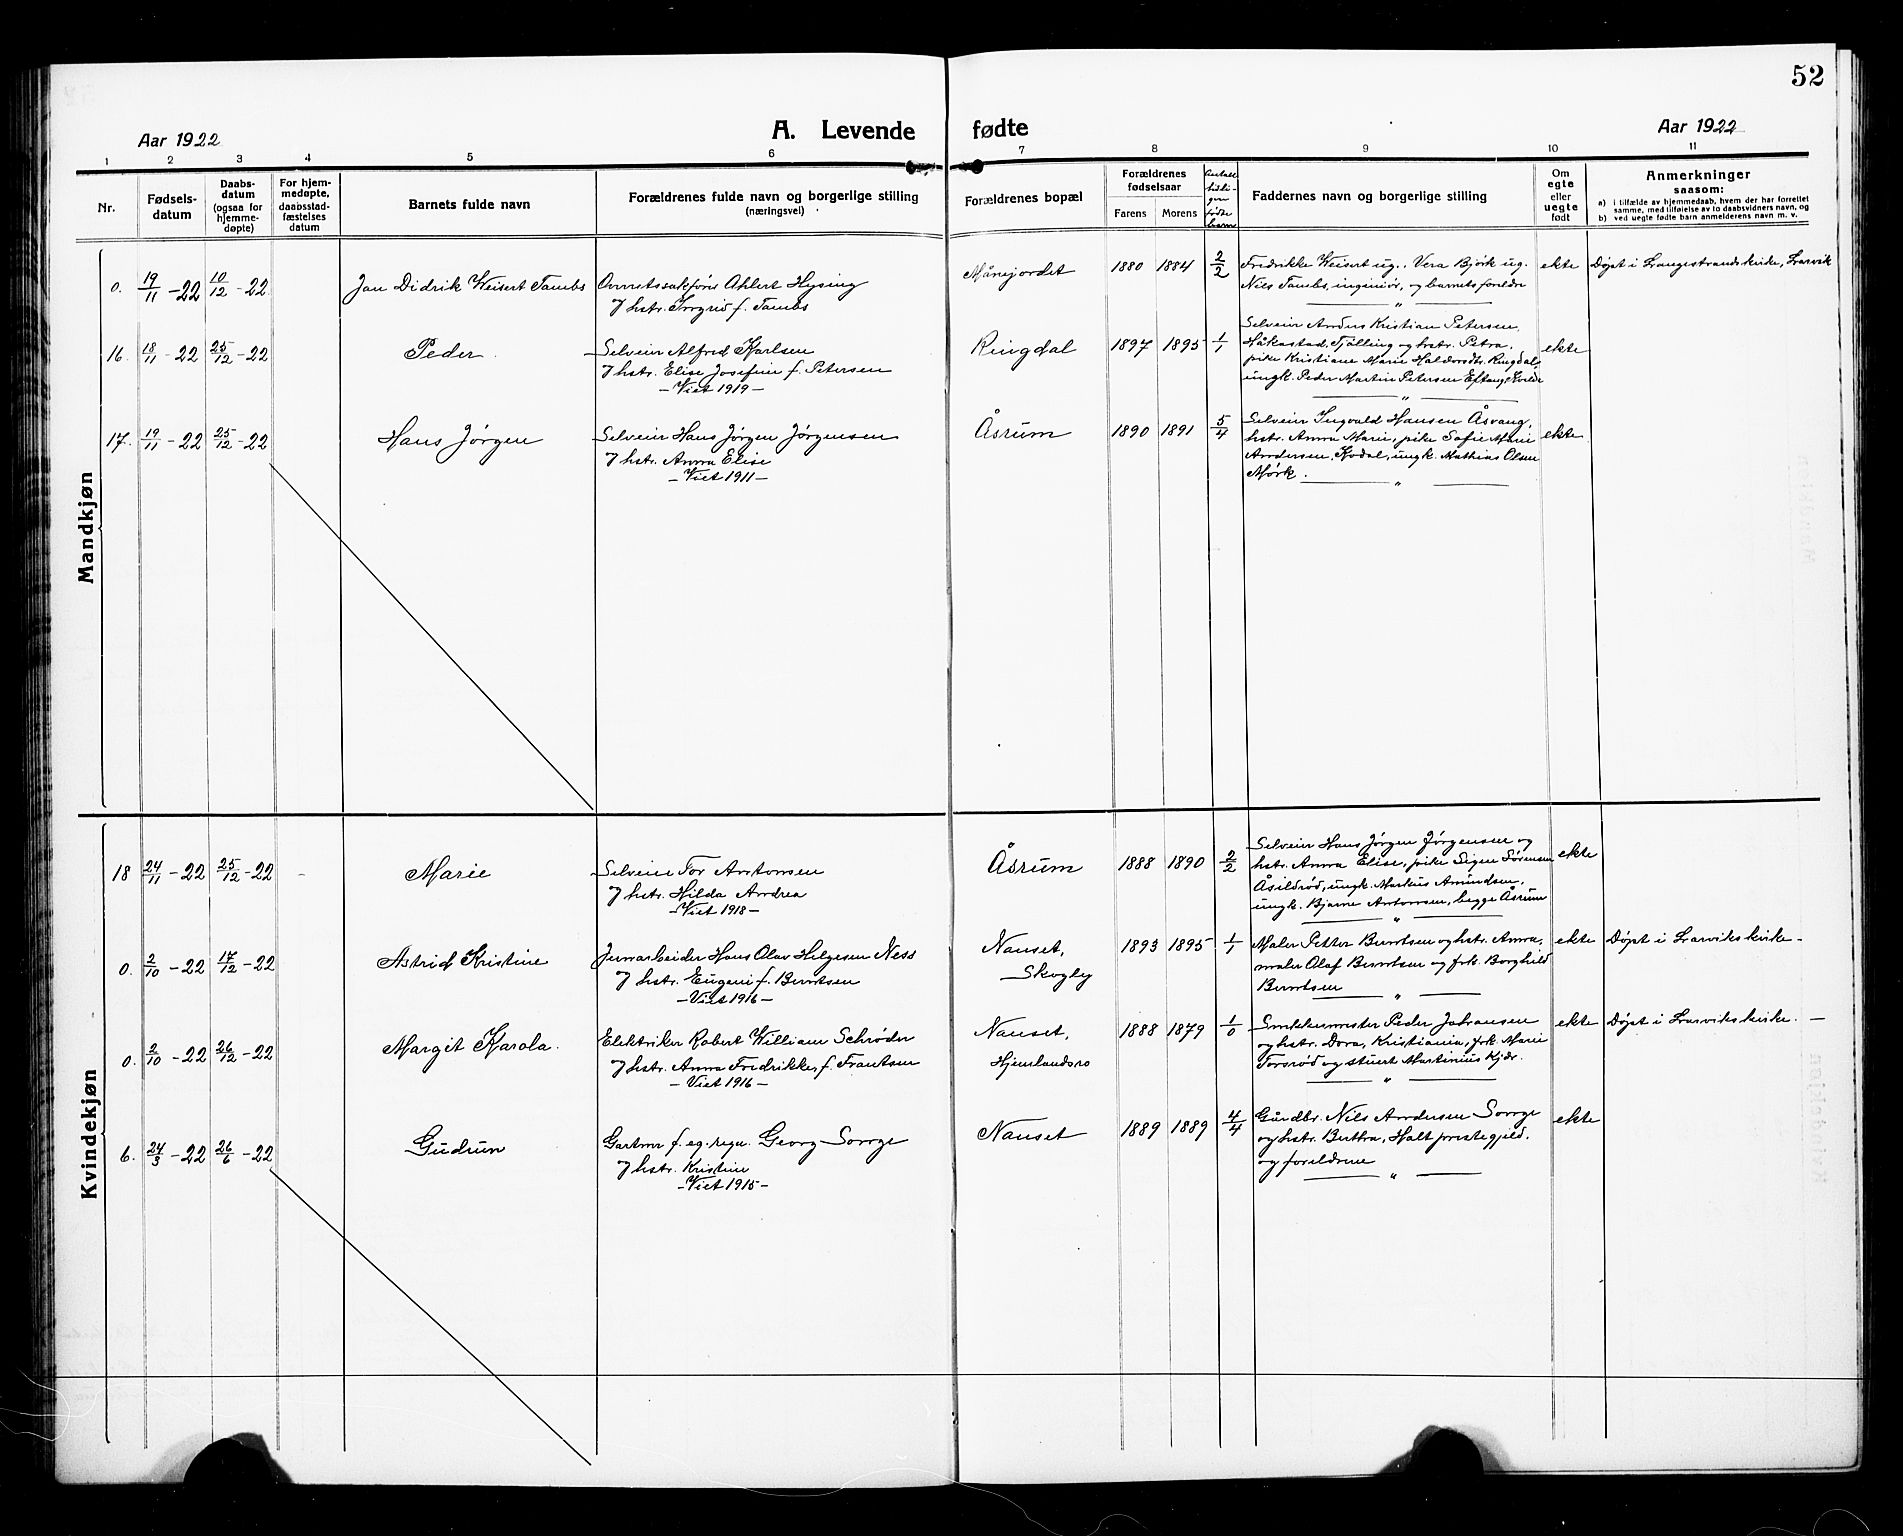 52
Aar 1922
A. Levende fødte
Aar 1922
1 2 3 4 5 6 7 8 9 10 11
Nr.
Fødsels-
datum
Daabs-
datum
(ogsaa for
hjemme-
døpte)
For hjem-
medøpte,
daabsstad-
fæstelses
datum
Barnets fulde navn
Forældrenes fulde navn og borgerlige stilling
(næringsvei)
Forældrenes bopæl
Forældrenes
fødselsaar
Farens Morens
Antall
tidli-
gere
fødte
barn
Faddernes navn og borgerlige stilling
Om
egte
eller
uegte
født
Anmerkninger
saasom:
a) i tilfælde av hjemmedaab, hvem der har forrettet
samme, med tilføielse av to daabsvidners navn, og
b) ved uegte fødte barn anmelderens navn m. v.
Mandkjøn
0. 19/11 - 22 10/12 - 22 Jan Didrik Weisert Tambs
Overretssakfører Ahlert Hysing
J hstr. Ingrid f. Tambs
Månejordet 1880 1884 2/2
Fredrikke Weisert ug., Vera Bjørk ug.
Nils Tambs, ingeniør, og barnets foreldre
ekte Døpt i Langestrands kirke, Larvik
16. 18/11 - 22 25/12 - 22 Peder
Selveier Alfred Karlsen
J hstr. Elise Josefine f. Petersen
- Viet 1919 -
Ringdal 1897 1895 1/1
Selveier Anders Kristian Petersen,
Håkastad, Tjølling og hstr. Petra,
pike Kristiane Marie Haldorsdtr. Ringdal,
ungk. Peder Martin Petersen Eftang, Kvelde
ekte
17. 19/11 - 22 25/12 - 22 Hans Jørgen
Selveier Hans Jørgen Jørgensen
J hstr. Anna Elise
- Viet 1911 -
Åsrum 1890 1891 5/4
Selveier Ingvald Hansen Åsvang,
hstr. Anna Marie, pike Sofie Marie
Andersen, Kodal, ungk. Mathias Olsen
Mørk.
ekte
Kvindekjøn
18 24/11 - 22 25/12 - 22 Marie
Selveier Tor Antonsen
J hstr. Hilda Andrea
- Viet 1918 -
Åsrum 1888 1890 2/2
Selveier Hans Jørgen Jørgensen og
hstr. Anna Elise, pike Signe Sørensen
Åsildrød, ungk. Markus Amundsen,
ungk. Bjarne Antonsen, begge Åsrum
ekte
0. 2/10 - 22 17/12 - 22 Astrid Kristine
Jernarbeider Hans Olav Helgesen Ness
J hstr. Eugenie f. Berntsen
- Viet 1916 -
Nanset,
Skogly
1893 1895 1/1
Maler Petter Berntsen og hstr. Anna,
maler Olaf Berntsen og frk. Borghild
Berntsen
ekte Døpt i Larviks kirke -
0. 2/10 - 22 26/12 - 22 Margit Karola.
Elektriker Robert William Schrøder
J hstr. Anna Fredrikke, f. Frantsen
- Viet 1916 -
Nanset,
Hjemlandsro
1888 1879 1/0
Snekkermester Peder Johansen
og hstr. Dora, Kristiania, frk. Marie
Torsrød og stuert Martinius Kjær.
ekte Døpt i Larviks kirke. -
6. 24/3 - 22 26/6 - 22 Gudrun
Gartner f. eg. regn. Georg Sorge
J hstr. Kristine
- Viet 1915 -
Nanset 1889 1889 4/4
Gårdbr. Nils Andersen Sorge
og hstr. Bertha, Holt prestegjeld.
og foreldrene
ekte